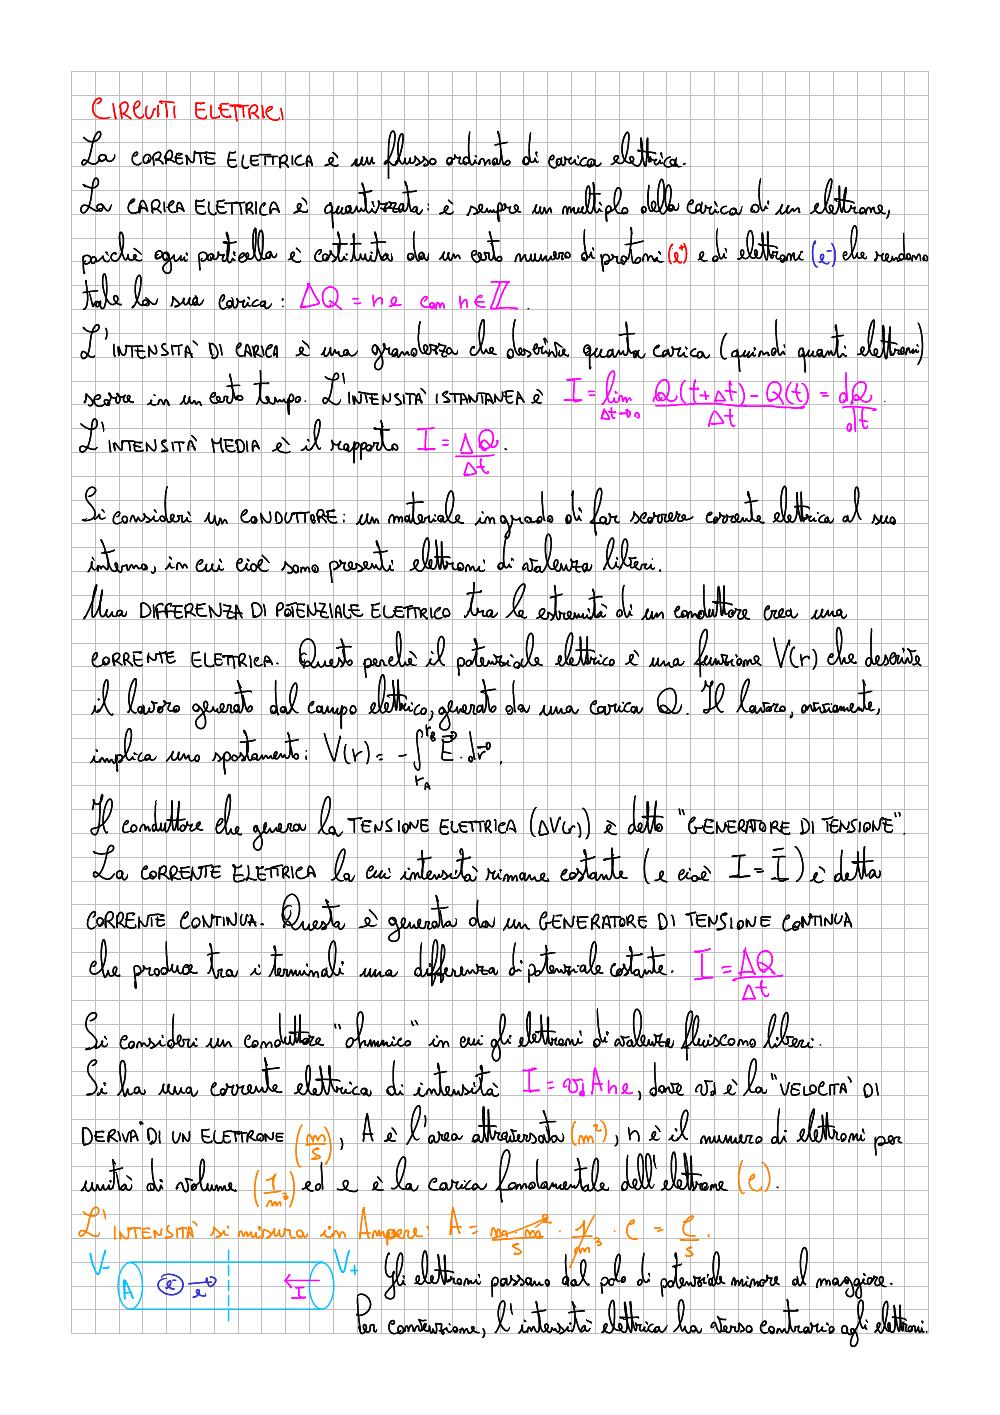 CIRCUITI ELETTRICI
La CORRENTE ELETTRICA è un flusso ordinato di carica elettrica.
La CARICA ELETTRICA è quantizzata: è sempre un multiplo della carica di un elettrone,
poichè ogni particella è costituita da un certo numero di protoni (e⁺) e di elettroni (e⁻) che rendono
tale la sua carica: ΔQ = ne con n∈ℤ.
L'INTENSITÀ DI CARICA è una grandezza che descrive quanta carica (quindi quanti elettroni)
scorre in un certo tempo. L'INTENSITÀ ISTANTANEA è I = lim Δt→0 (Q(t+Δt) - Q(t))/Δt = dQ/dt.
L'INTENSITÀ MEDIA è il rapporto I = ΔQ/Δt.
Si consideri un CONDUTTORE: un materiale in grado di far scorrere corrente elettrica al suo
interno, in cui cioè sono presenti elettroni di valenza liberi.
Una DIFFERENZA DI POTENZIALE ELETTRICO tra le estremità di un conduttore crea una
CORRENTE ELETTRICA. Questo perchè il potenziale elettrico è una funzione V(r) che descrive
il lavoro generato dal campo elettrico, generato da una carica Q. Il lavoro, ovviamente,
implica uno spostamento: V(r) = -∫_{r_A}^{r_B} E⃗ · dr⃗.
Il conduttore che genera la TENSIONE ELETTRICA (ΔV(r)) è detto "GENERATORE DI TENSIONE".
La CORRENTE ELETTRICA la cui intensità rimane costante (e cioè I = Ī) è detta
CORRENTE CONTINUA. Questa è generata da un GENERATORE DI TENSIONE CONTINUA
che produce tra i terminali una differenza di potenziale costante. I = ΔQ/Δt
Si consideri un conduttore "ohmmico" in cui gli elettroni di valenza fluiscono liberi.
Si ha una corrente elettrica di intensità I = v_d A n e, dove v_d è la "VELOCITÀ DI
DERIVA" DI UN ELETTRONE (m/s), A è l'area attraversata (m²), n è il numero di elettroni per
unità di volume (1/m³) ed e è la carica fondamentale dell'elettrone (C).
L'INTENSITÀ si misura in Ampere: A = (m · m²)/s · 1/m³ · C = C/s.
V- A e⁻ e⁻ I V+
Gli elettroni passano dal polo di potenziale minore al maggiore.
Per convenzione, l'intensità elettrica ha verso contrario agli elettroni.